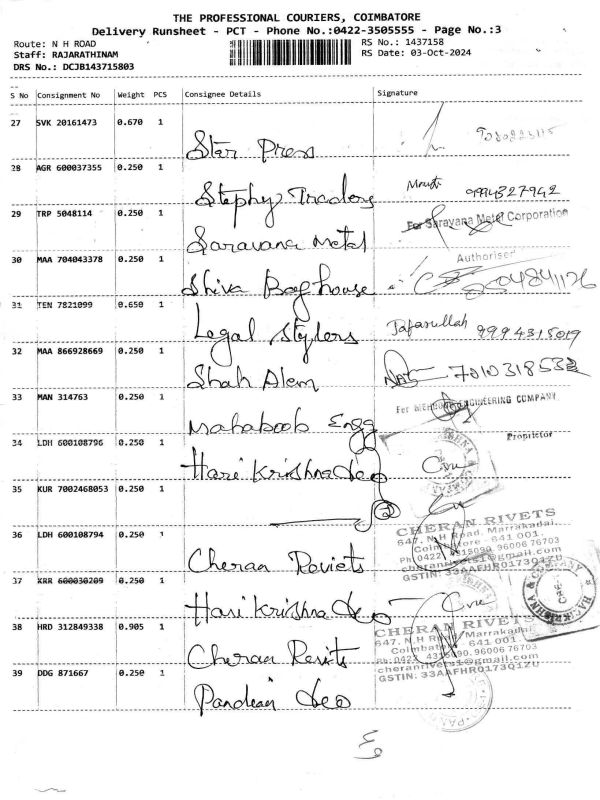 THE PROFESSIONAL COURIERS, COIMBATORE
Delivery Runsheet - PCT - Phone No.:0422-3505555 - Page No.:3
Route: N H ROAD
RS No.: 1437158
Staff: RAJARATHINAM
RS Date: 03-Oct-2024
DRS No.: DCJB143715803
S No Consignment No Weight PCS Consignee Details Signature
27 SVK 20161473 0.670 1
Star Press
28 AGR 600037355 0.250 1
Stephy Traders 9994327942
29 TRP 5048114 0.250 1
For Saravana Metal Corporation
Saravana Metal
Authorised
30 MAA 704043378 0.250 1
Shiva Bag house
31 TEN 7821099 0.650 1
Legal Stylers Jafarullah 9994315019
32 MAA 866928669 0.250 1
Shah Alam
33 MAN 314763 0.250 1
For MEHBOOB ENGINEERING COMPANY
Mahaboob Engg
Proprietor
34 LDH 600108796 0.250 1
Hari Krishna &co
35 KUR 7002468053 0.250 1
CHERAN RIVETS
647, N.H Road, Marrakadai,
Coimbatore - 641 001.
36 LDH 600108794 0.250 1
Ph: 0422 - 4315090, 96006 76703
cheranrivets1@gmail.com
GSTIN: 33AAFHR0173Q1ZU
Cheran Reviets
37 KRR 600030209 0.250 1
Hari Krishna &co
HARIKRISHNA & COMPANY
38 HRD 312849338 0.905 1
CHERAN RIVETS
647, N.H Road, Marrakadai,
Coimbatore - 641 001.
Ph: 0422 - 4315090, 96006 76703
cheranrivets1@gmail.com
GSTIN: 33AAFHR0173Q1ZU
Cheran Revits
39 DDG 871667 0.250 1
Pandian &co